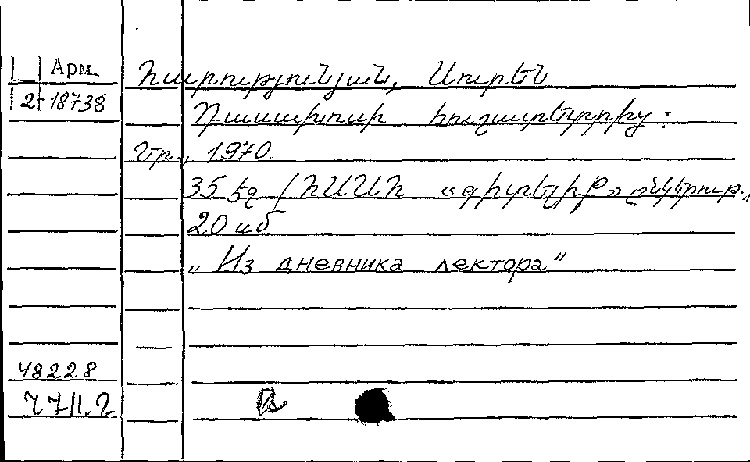 Арм.
2-18738
Հարությունյան, Սուրեն
Դասախոսի հուշատետրից:
Եր., 1970.
35 էջ /ՀՍՍՀ «Գիտելիք» ընկերութ.,
20 սմ
„Из дневника лектора"
48228